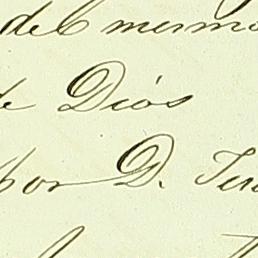 del mismo
de Dios
por D.